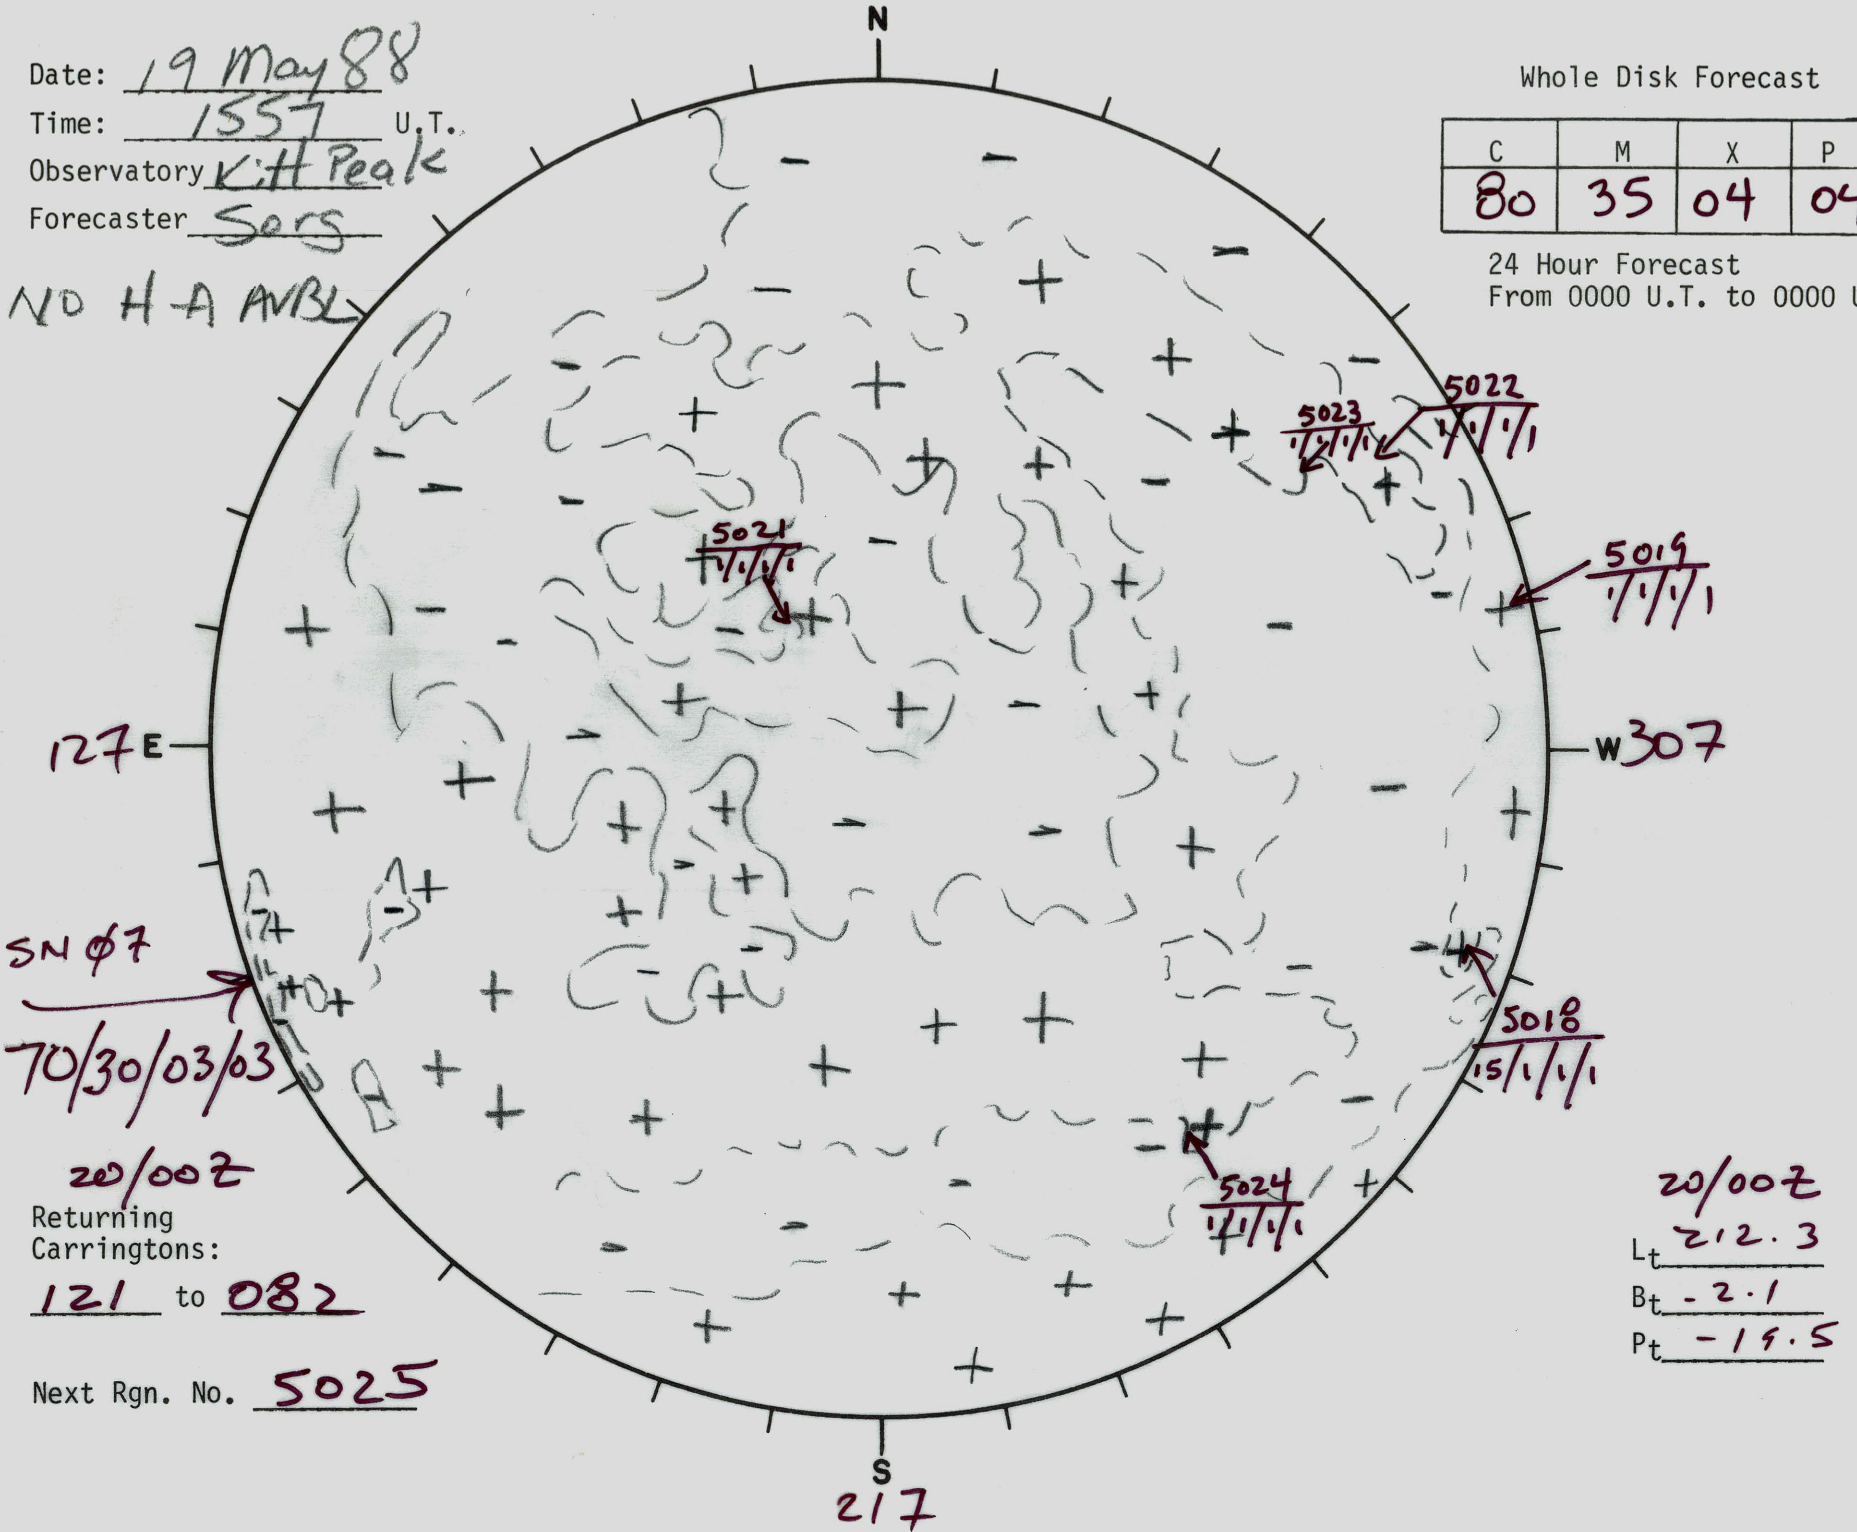 N
Date: 19 May 88
Time: 1557 U.T.
Observatory Kitt Peak
Forecaster Sorg
NO H-A AVBL
Whole Disk Forecast
C M X P
80 35 04 04
24 Hour Forecast
From 0000 U.T. to 0000 U
5022
1/1/1/1
5023
1/1/1/1
5021
1/1/1/1
5019
1/1/1/1
127 E
W 307
SN Ø7
70/30/03/03
5018
15/1/1/1
5024
1/1/1/1
20/00Z
Returning
Carringtons:
121 to 082
Next Rgn. No. 5025
20/00Z
Lt 212.3
Bt -2.1
Pt -19.5
S
217